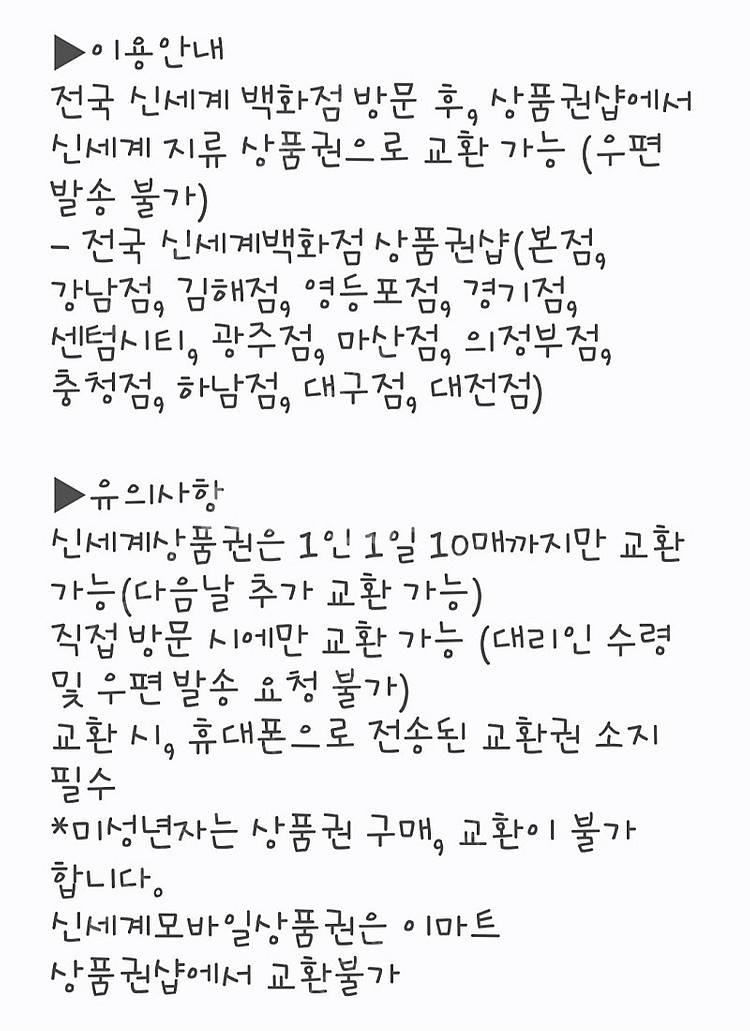 ▶이용안내
전국 신세계 백화점 방문 후, 상품권샵에서
신세계 지류 상품권으로 교환 가능 (우편
발송 불가)
- 전국 신세계백화점 상품권샵(본점,
강남점, 김해점, 영등포점, 경기점,
센텀시티, 광주점, 마산점, 의정부점,
충청점, 하남점, 대구점, 대전점)
▶유의사항
신세계상품권은 1인 1일 10매까지만 교환
가능(다음날 추가 교환 가능)
직접 방문 시에만 교환 가능 (대리인 수령
및 우편 발송 요청 불가)
교환 시, 휴대폰으로 전송된 교환권 소지
필수
*미성년자는 상품권 구매, 교환이 불가
합니다.
신세계모바일상품권은 이마트
상품권샵에서 교환불가